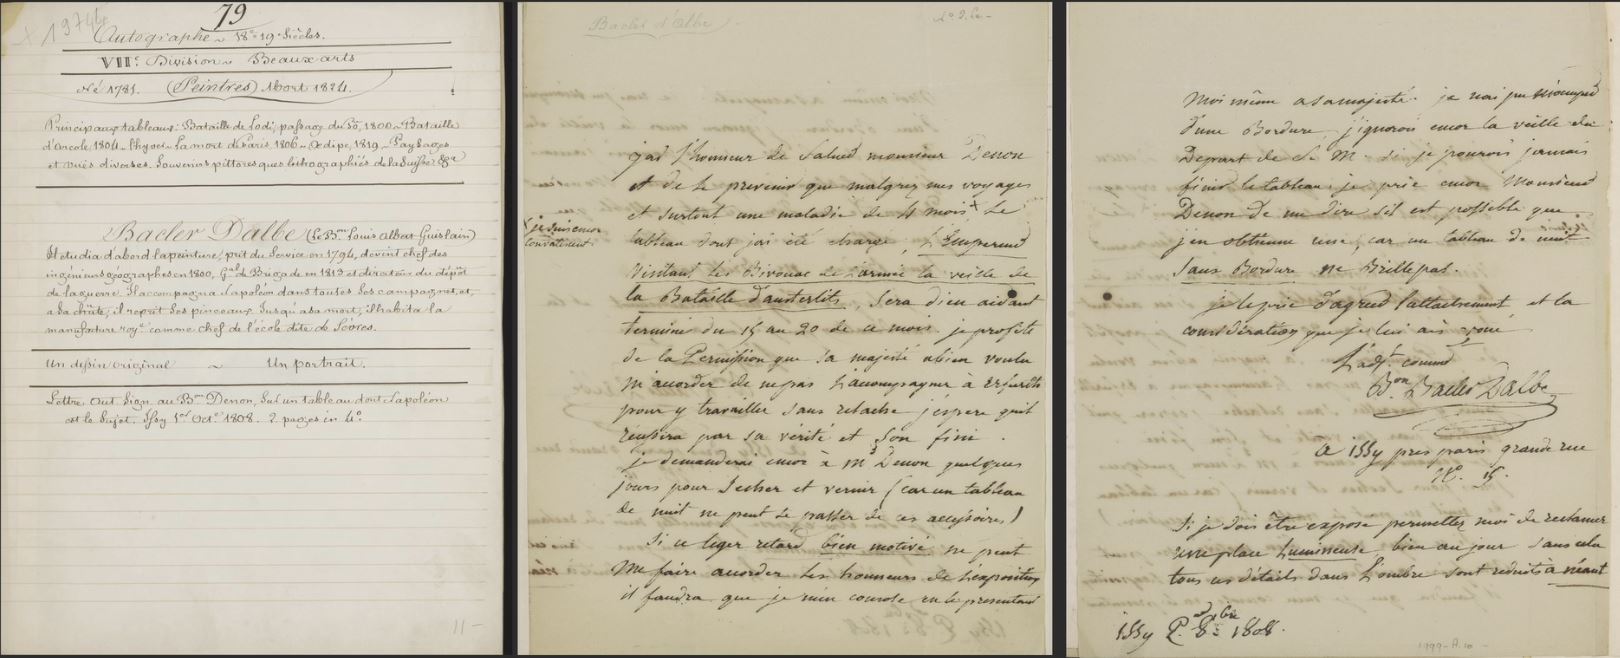 79
X 1974
Autographe ~ 18e 19e Siècles.
VIIe. Division ~ Beaux-arts
Né 1781. (Peintres) Mort 1824.
Principaux tableaux: Bataille de Lodi, passage du Pô, 1800 ~ Bataille
d'Arcole, 1804 ~ Thyoci ~ La mort de Paris 1806 ~ Oedipe, 1819 ~ Paysages
et vues diverses. Souvenirs pittoresques lithographiés de la Suisse &a
Bacler Dalbe (le Bon Louis Albert Guislain)
Il étudia d'abord la peinture, prit du Service en 1794, devint chef des
ingénieurs géographes en 1800, Gal de Brigade en 1813 et directeur du dépôt
de la guerre. Il accompagna Napoléon dans toutes ses campagnes, et,
a sa chûte, il reprit ses pinceaux. Jusqu'à sa mort, il habita la
manufacture roye comme chef de l'école dite de Sèvres.
Un dessin original ~ Un portrait.
Lettre Aut. Sign. au Bon Denon, Sur un tableau dont Napoléon
est le Sujet. Issy 1er Octe 1808. 2 pages in 4o.
11 -
Bacler d'Albe -
j'ai l'honneur de Salued monsieur Denon
et de le prevenir que malgrez mes voyages
et surtout une maladie de 4 mois + Le
+ je suis encor
Convalescent.
tableau dont jai été charge, L'Empereur
Visitant les Bivouac de l'armée la veille de
la Bataille d'austerlits, Sera dieu aidant
terminé du 15 au 20 de ce mois. je profite
de la Permission que Sa majesté a bien voulu
m'acorder de ne pas L'acompagner à Erfurth
pour y travailler Sans relache j'espere quil
réussira par Sa vérité et Son fini.
je demanderai encor à Mr Denon quelques
jours pour Secher et vernir (car un tableau
de nuit ne peut Se passer de ces accessoires)
Si ce leger retard bien motivé ne peut
Me faire acorder les honneurs de L'exposition
il faudra que je m'en console en le presentant
Moi même a Sa majesté. je nai pu m'ocuper
d'une Bordure, j'ignorois encor la veille du
Depart de S. M. Si je pourois jamais
finir le tableau; je prie encor Monsieur
Denon de me dire Sil est possible que
j'en obtienne une, car un tableau de nuit
Sans Bordure ne Brille pas.
je le prie d'agreer l'attachement et la
considération que je lui ais voué
L'adjt commt
Bon. Bacler Dalbe
a issy pres paris grande rue
No. 15.
Si je dois être exposé permettez moi de reclamer
une place lumineuse bien au jour Sans cela
tous ces détails dans L'ombre Sont reduits a néant
issy 1808.
1999-A.10 -